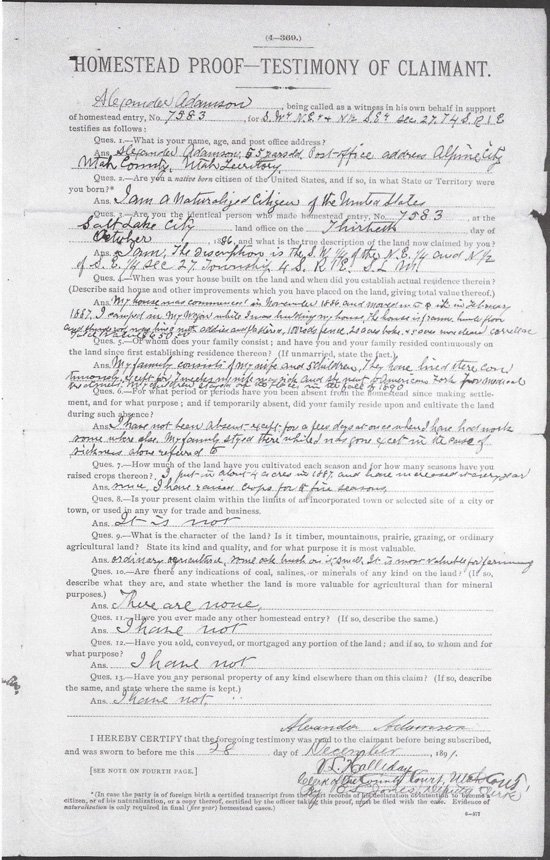 (4—369.)
HOMESTEAD PROOF—TESTIMONY OF CLAIMANT.
Alexander Adamson, being called as a witness in his own behalf in support
of homestead entry, No. 7583, for S. W4 N. E4 & N/2 S. E4 Sec 27. T 4 S. R 1 E
testifies as follows:
Ques. 1.—What is your name, age, and post office address?
Ans. Alexander Adamson, 55 years old, Post-office address Alpine City
Utah County, Utah Territory.
Ques. 2.—Are you a native born citizen of the United States, and if so, in what State or Territory were
you born?*
Ans. I am a Naturalized Citizen of the United States
Ques. 3.—Are you the identical person who made homestead entry, No. 7583, at the
Salt Lake City land office on the Thirtieth day of
October 1886, and what is the true description of the land now claimed by you?
Ans. I am, The description is the S. W. 1/4 of the N. E. 1/4 and N/2
of S. E. 1/4 Sec 27. Township 4 S. R 1 E. S. L. M.
Ques. 4.—When was your house built on the land and when did you establish actual residence therein?
(Describe said house and other improvements which you have placed on the land, giving total value thereof.)
Ans. My house was commenced in November 1886 and moved in it in February
1887. I camped in my wagon while I was building my house, The house is frame,
Ques. 5.—Of whom does your family consist; and have you and your family resided continuously
on the land since first establishing residence thereon? (If unmarried, state the fact.)
Ans. My family consists of my wife and children, They have lived there con
tinuously except for
Ques. 6.—For what period or periods have you been absent from the homestead since making settle-
ment, and for what purpose; and if temporarily absent, did your family reside upon and cultivate the land
during such absence?
Ans. I have not been absent except for a few days at once when I have had work
some where else. My family stayed there while I was gone except in the case of
sickness above referred to
Ques. 7.—How much of the land have you cultivated each season and for how many seasons have you
raised crops thereon? I put in about 4 acres in 1887. and have increased it every year
since, I have raised crops for five seasons.
Ques. 8.—Is your present claim within the limits of an incorporated town or selected site of a city or
town, or used in any way for trade and business.
Ans. It is not
Ques. 9.—What is the character of the land? Is it timber, mountainous, prairie, grazing, or ordinary
agricultural land? State its kind and quality, and for what purpose it is most valuable.
Ans. ordinary agriculture, some oak bush on it, small. It is most valuable for farming
Ques. 10.—Are there any indications of coal, salines, or minerals of any kind on the land? (If so,
describe what they are, and state whether the land is more valuable for agricultural than for mineral
purposes.)
Ans. There are none.
Ques. 11.—Have you ever made any other homestead entry? (If so, describe the same.)
Ans. I have not
Ques. 12.—Have you sold, conveyed, or mortgaged any portion of the land; and if so, to whom and for
what purpose?
Ans. I have not
Ques. 13.—Have you any personal property of any kind elsewhere than on this claim? (If so, describe
the same, and state where the same is kept.)
Ans. I have not.
Alexander Adamson
I HEREBY CERTIFY that the foregoing testimony was read to the claimant before being subscribed,
and was sworn to before me this 28 day of December, 1891.
V. L. Halliday
[SEE NOTE ON FOURTH PAGE.]
Clerk of the County Court, Utah Co.
Deputy Clerk
*(In case the party is of foreign birth a certified transcript from the court records of his declaration of intention to become a
citizen, or of his naturalization, or a copy thereof, certified by the officer taking this proof, must be filed with the case. Evidence of
naturalization is only required in final (five year) homestead cases.)